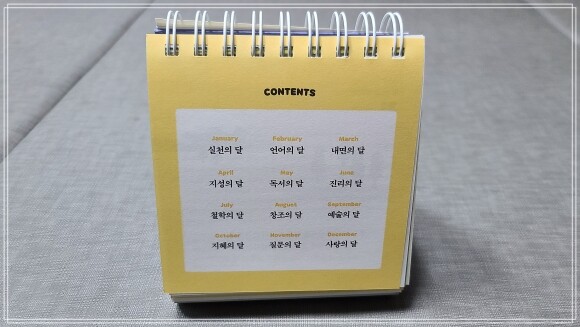 CONTENTS
January February March
실천의 달 언어의 달 내면의 달
April May June
지성의 달 독서의 달 진리의 달
July August September
철학의 달 창조의 달 예술의 달
October November December
지혜의 달 질문의 달 사랑의 달